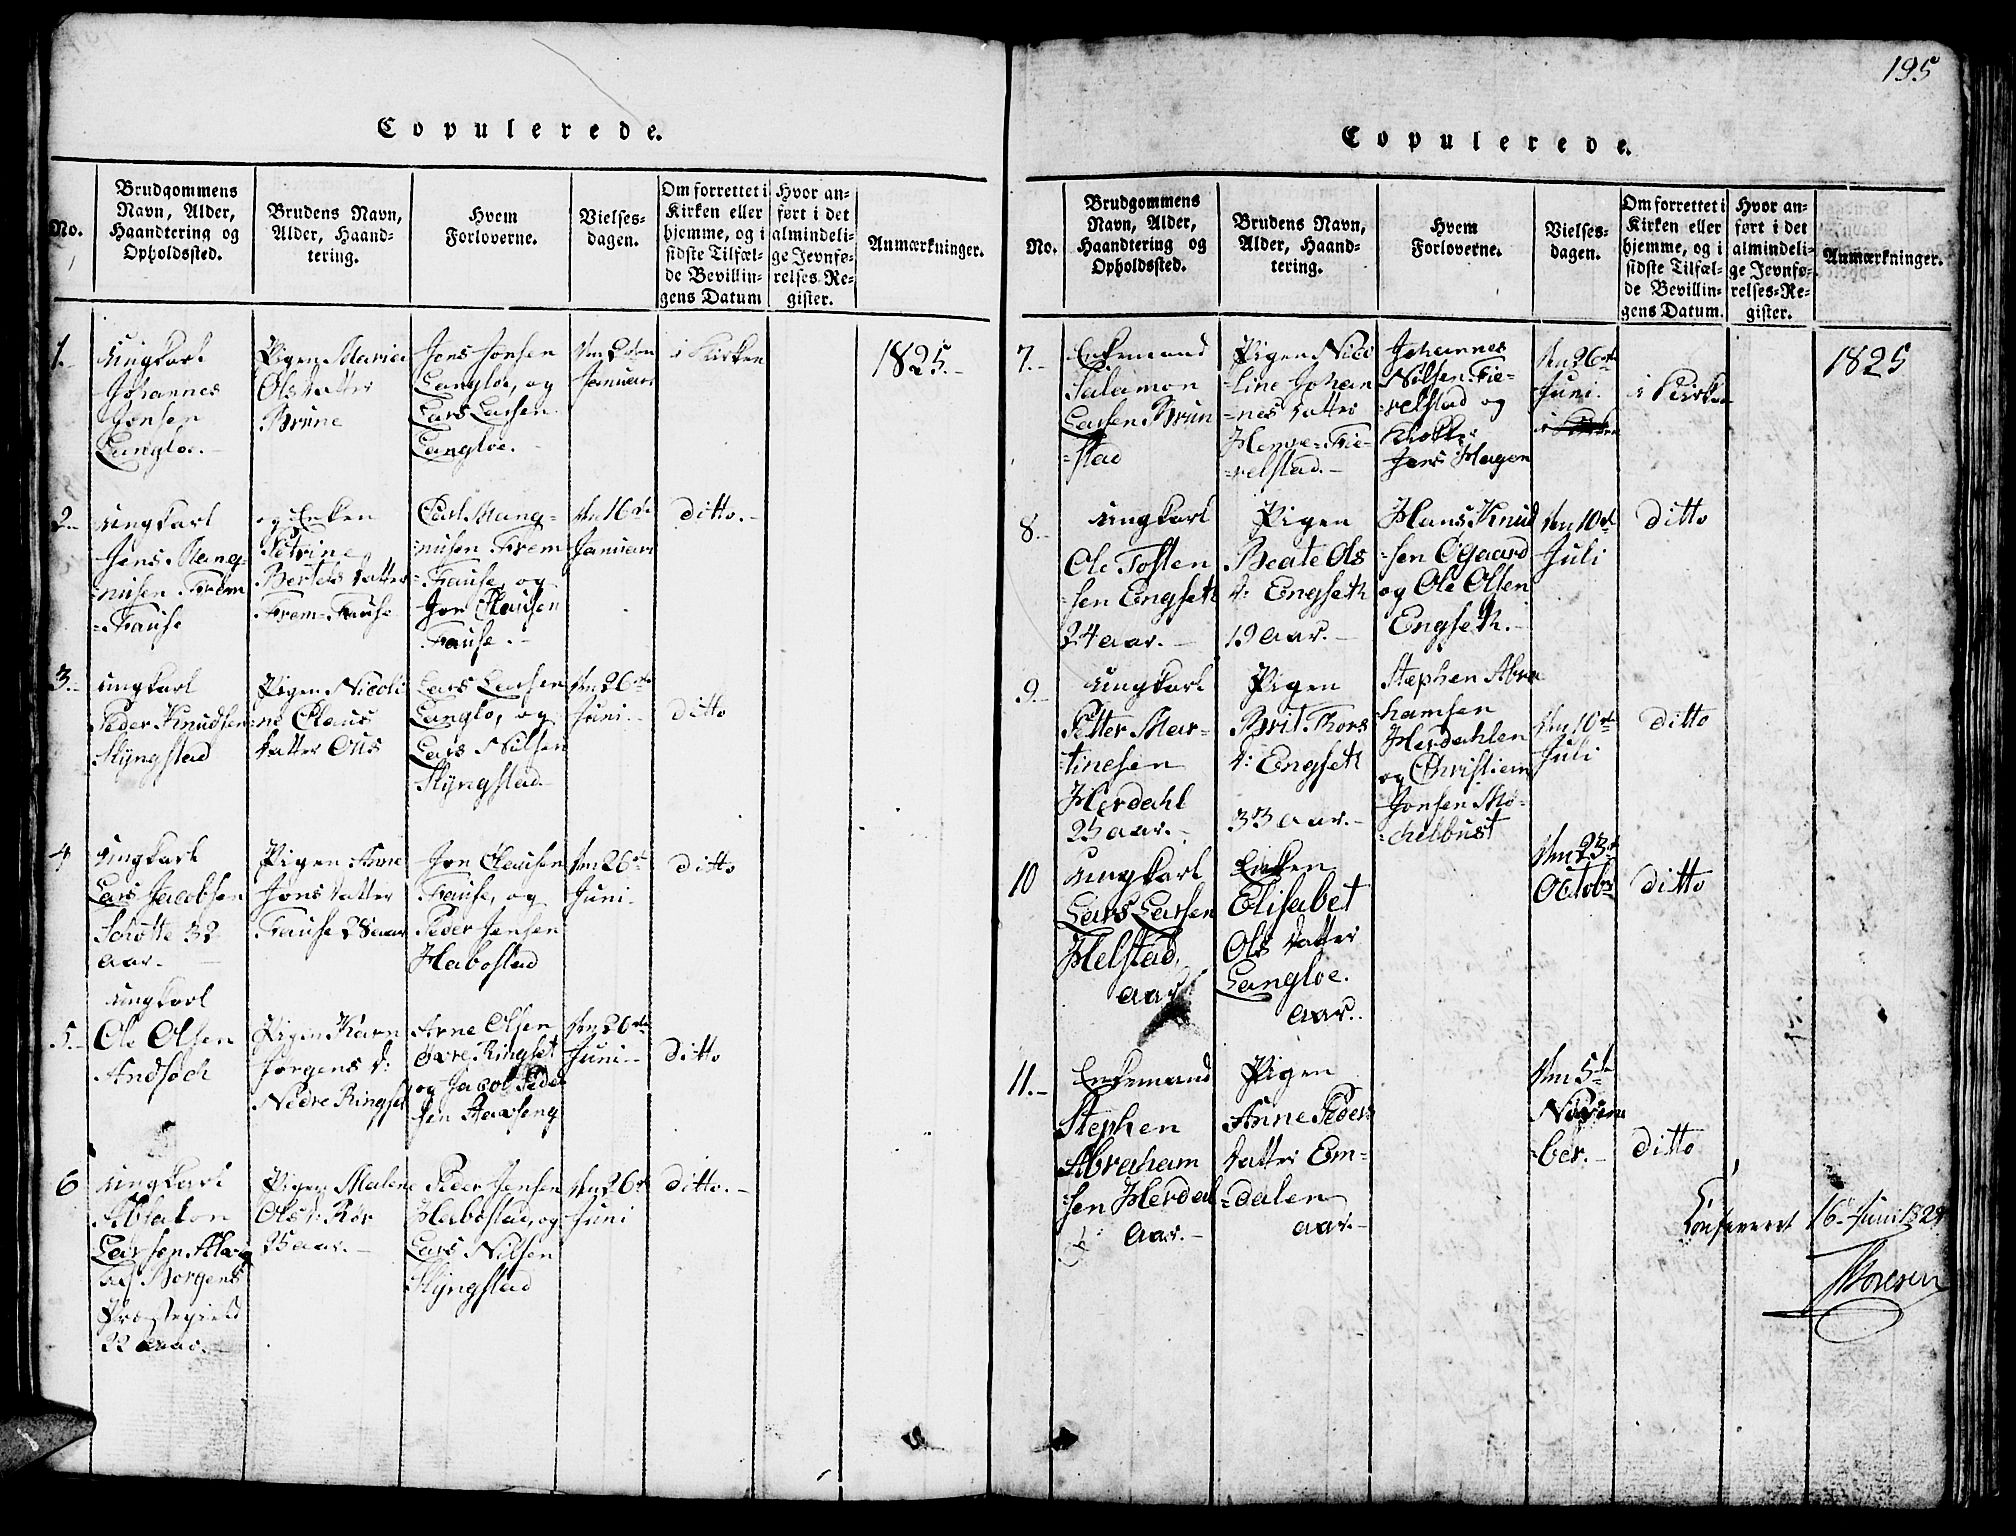 195
Copulerede.
No.
Brudgommens
Navn, Alder,
Haandtering og
Opholdssted.
Brudens Navn,
Alder, Haand-
tering.
Hvem
Forloverne.
Vielses-
dagen.
Om forrettet i
Kirken eller
hjemme, og i
sidste Tilfæl-
de Bevillin-
gens Datum
Hvor an-
ført i det
almindeli-
ge Jevnfø-
relses-Re-
gister.
Anmærkninger.
1.
Ungkarl
Johannes
Jonsen
Langloe.
Pigen Maria
Olsdatter
Brune
Jens Jonsen
Langloe, og
Lars Larsen
Langloe.
Januari
i Kirken
1825.
2.
Ungkarl
Jens Mang-
nusen Frem
=Frause
og Enken
Petrine
Bertelsdatter
Frem=Frause
Carl Mang=
nusen Frem
=Frause, og
Jon Clausen
Frause.
den 16de
Januari
ditto.
3.
Ungkarl
Peder Knudsen
Myngstad
Pigen Nicoli
ne Claus
datter Ous
Lars Larsen
Langlo, og
Lars Nilsen
Myngstad
den 26de
Juni
ditto
4
Ungkarl
Lars Jacobsen
Schotte 32
aar.
Pigen Anne
Jonsdatter
Frause 28 aar
Jon Clausen
Frause, og
Peder Jensen
Habostad
den 26de
Juni
ditto
5.
Ungkarl
Ole Olsen
Andsoch
Pigen Karn
Jorgens d:
Nedre Ringset
Arne Olsen
Øvre Ringset
og Jacob Peder
sen Aarseng
den 26de
Juni
ditto
6
Ungkarl
Absalon
Larsen
af Borgens
Præstegield
22 aar.
Pigen Malene
Ols d: Rør
25 aar.
Peder Jensen
Habostad, og
Lars Nilsen
Myngstad
den 26de
Juni
ditto.
Copulerede.
No.
Brudgommens
Navn, Alder,
Haandtering og
Opholdssted.
Brudens Navn,
Alder, Haand-
tering.
Hvem
Forloverne.
Vielses-
dagen.
Om forrettet i
Kirken eller
hjemme, og i
sidste Tilfæl-
de Bevillin-
gens Datum.
Hvor an-
ført i det
almindeli-
ge Jevnfø-
relses-Re-
gister.
Anmærkninger.
7.
Enkemand
Salamon
Larsen Brun
=stad
Pigen Nico
=line Johan
=nes datter
=Fie-
=relstad.
Johannes
Nilsen Fie-
=relstad og
Klokker
Jens Hagen
den 26de
Juni.
i Kirken
i Kirken
1825
8.
Ungkarl
Ole Tosten
=sen Engseth
24 aar.
Pigen
Beate Ols
d: Engseth
19 aar.
Hans Knud
=sen Øgaard
og Ole Olsen
Engseth.
den 10de
Juli
ditto
9.
Ungkarl
Petter Mar-
=tinesen
Herdahl
25 aar.
Pigen
Brit Thors
d: Engseth
33 aar.
Stephen Abra
hamsen
Herdahlen
og Christian
Jonsen Mø-
=chelbust
den 10de
Juli
ditto
10
Ungkarl
Lars Larsen
Helstad.
aar
Enken
Elisabet
Ols datter
Langloe.
aar.
den 23de
Octobr
ditto
11.
Enkemand
Stephen
Abraham
=sen Herdal
aar.
Pigen
Anne Peders
datter Em=
=dalen
aar.
den 5te
Novem
=ber.
ditto
16 Juni 182
Thoresen